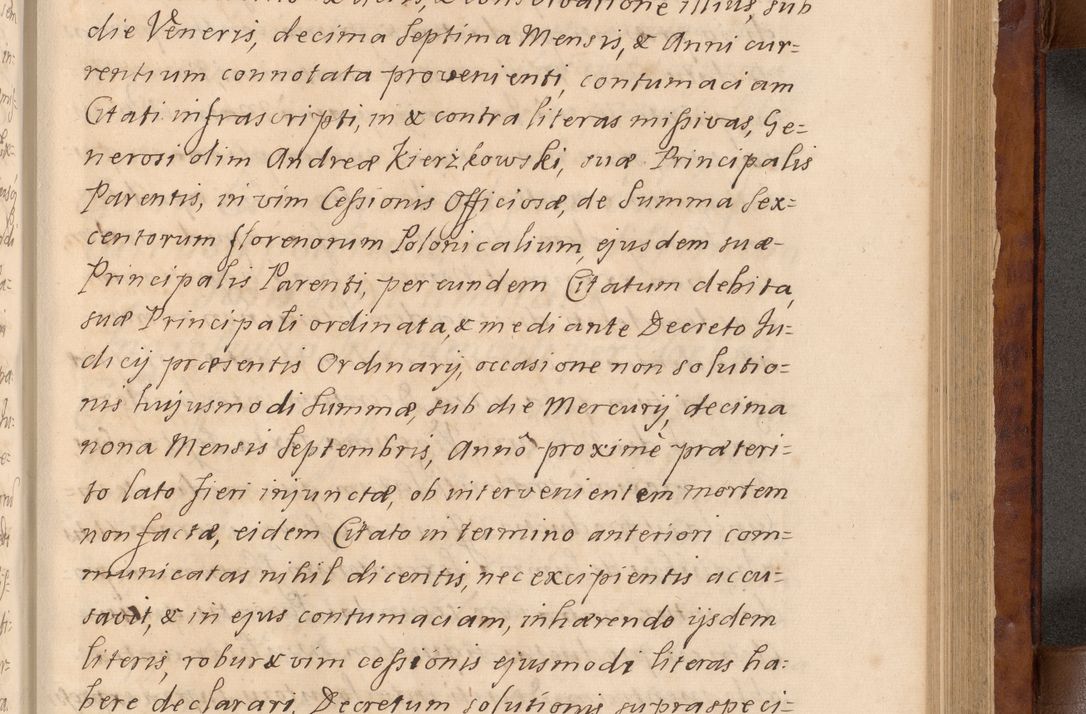 & conservatione illius, sub
die Veneris, decima septima Mensis, & Anni cur=
rentium connotata provenienti, contumaciam
Citati infrascripti, in & contra literas missivas, Ge=
nerosi olim Andreæ Kierżkowski, suæ Principalis
Parentis, in vim Cessionis Officiosæ, de Summa Sex=
centorum florenorum Polonicalium, ejusdem suæ
Principalis Parenti, per eundem Citatum debita,
suæ Principali ordinata, & mediante Decreto Ju=
dicij præsentis Ordinarij, occasione non solutio=
nis hujusmodi Summæ, sub die Mercurij, decima
nona Mensis Septembris, Annô proximè præteri=
to lato fieri injunctæ, ob intervenientem mortem
non factæ, eidem Citato in termino anteriori com=
municatas nihil dicentis, nec excipientis accu=
savit, & in ejus contumaciam, inhærendo ijsdem
literis, robur & vim cessionis ejusmodi literas ha=
bere declarari, Decretum solutionis supraspeci=